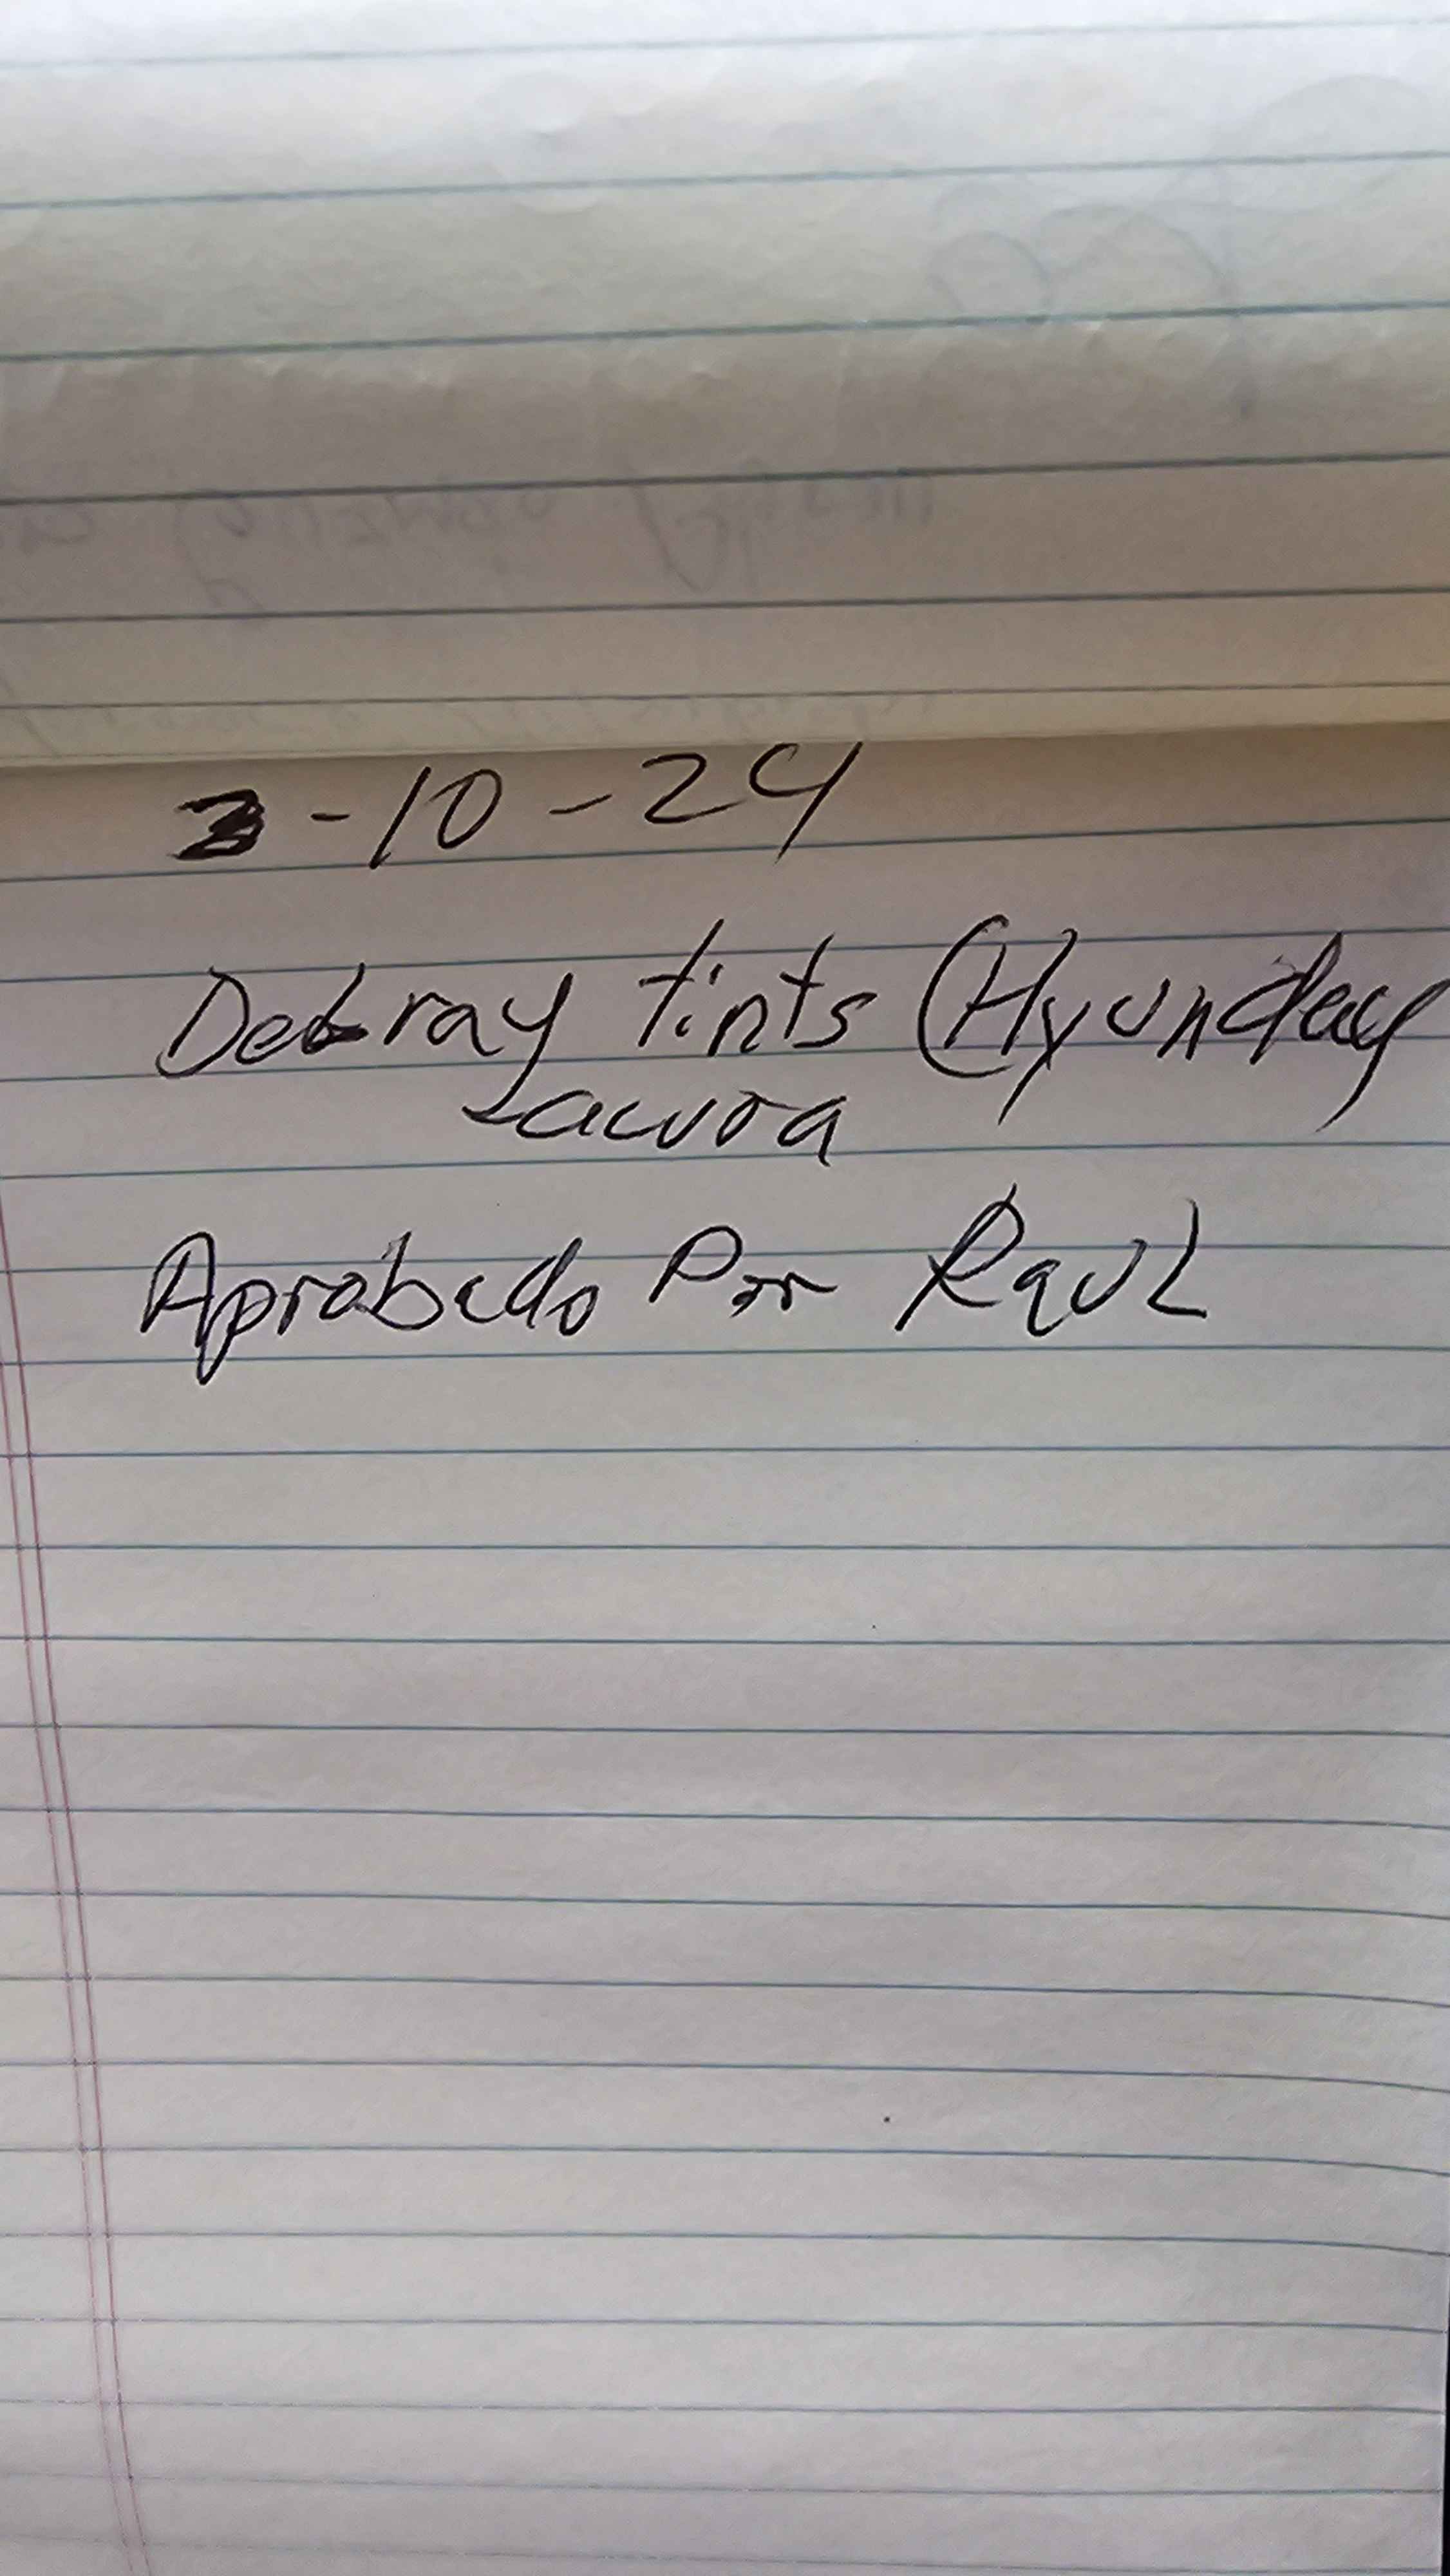 3-10-24
Debray tints (Hyunday
Lacura
Aprobado Por Raul